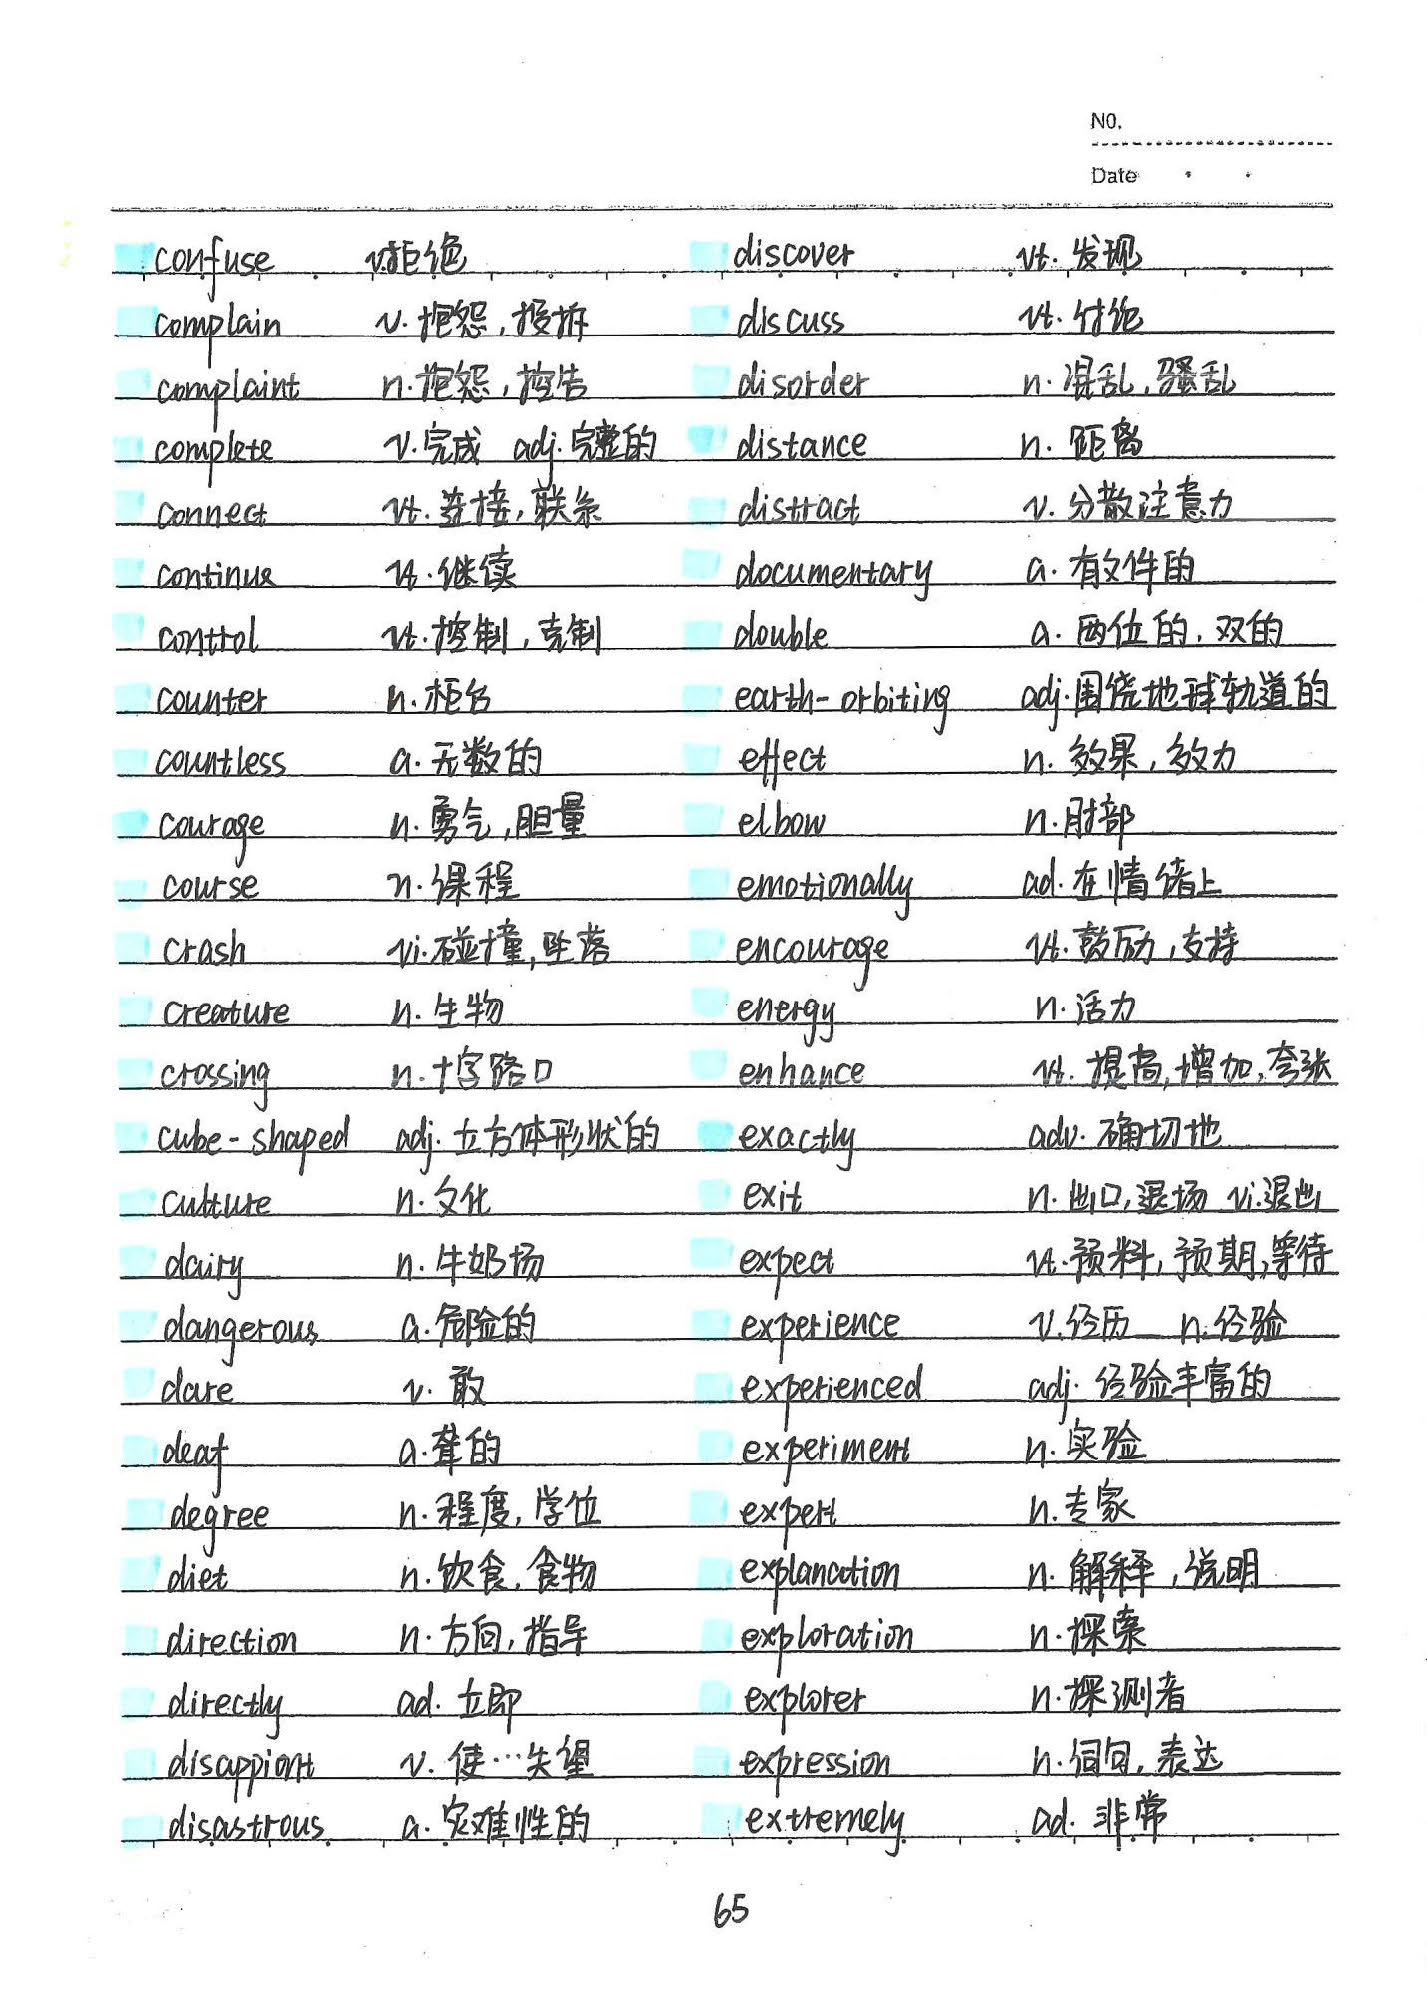 NO.
Date
confuse v.拒绝 discover vt. 发现
complain v. 抱怨,投拆 discuss vt. 讨论
complaint n.抱怨,控告 disorder n. 混乱,骚乱
complete v.完成 adj.完整的 distance n. 距离
connect vt.连接,联系 distract v. 分散注意力
continue vt.继续 documentary a. 有文件的
control vt.控制,克制 double a. 两位的,双的
counter n.柜台 earth-orbiting adj.围绕地球轨道的
countless a.无数的 effect n. 效果,效力
courage n.勇气,胆量 elbow n.肘部
course n.课程 emotionally ad.在情绪上
crash vi.碰撞,坠落 encourage vt.鼓励,支持
creature n.生物 energy n.活力
crossing n.十字路口 enhance vt. 提高,增加,夸张
cube-shaped adj.立方体形状的 exactly adv.确切地
culture n.文化 exit n.出口,退场 vi.退出
dairy n.牛奶场 expect vt.预料,预期,等待
dangerous a.危险的 experience v.经历 n.经验
dare v.敢 experienced adj.经验丰富的
deaf a.聋的 experiment n.实验
degree n.程度,学位 expert n.专家
diet n.饮食,食物 explanation n.解释,说明
direction n.方向,指导 exploration n.探索
directly ad.立即 explorer n.探测者
disappiont v.使…失望 expression n.词句,表达
disastrous a.灾难性的 extremely ad.非常
65